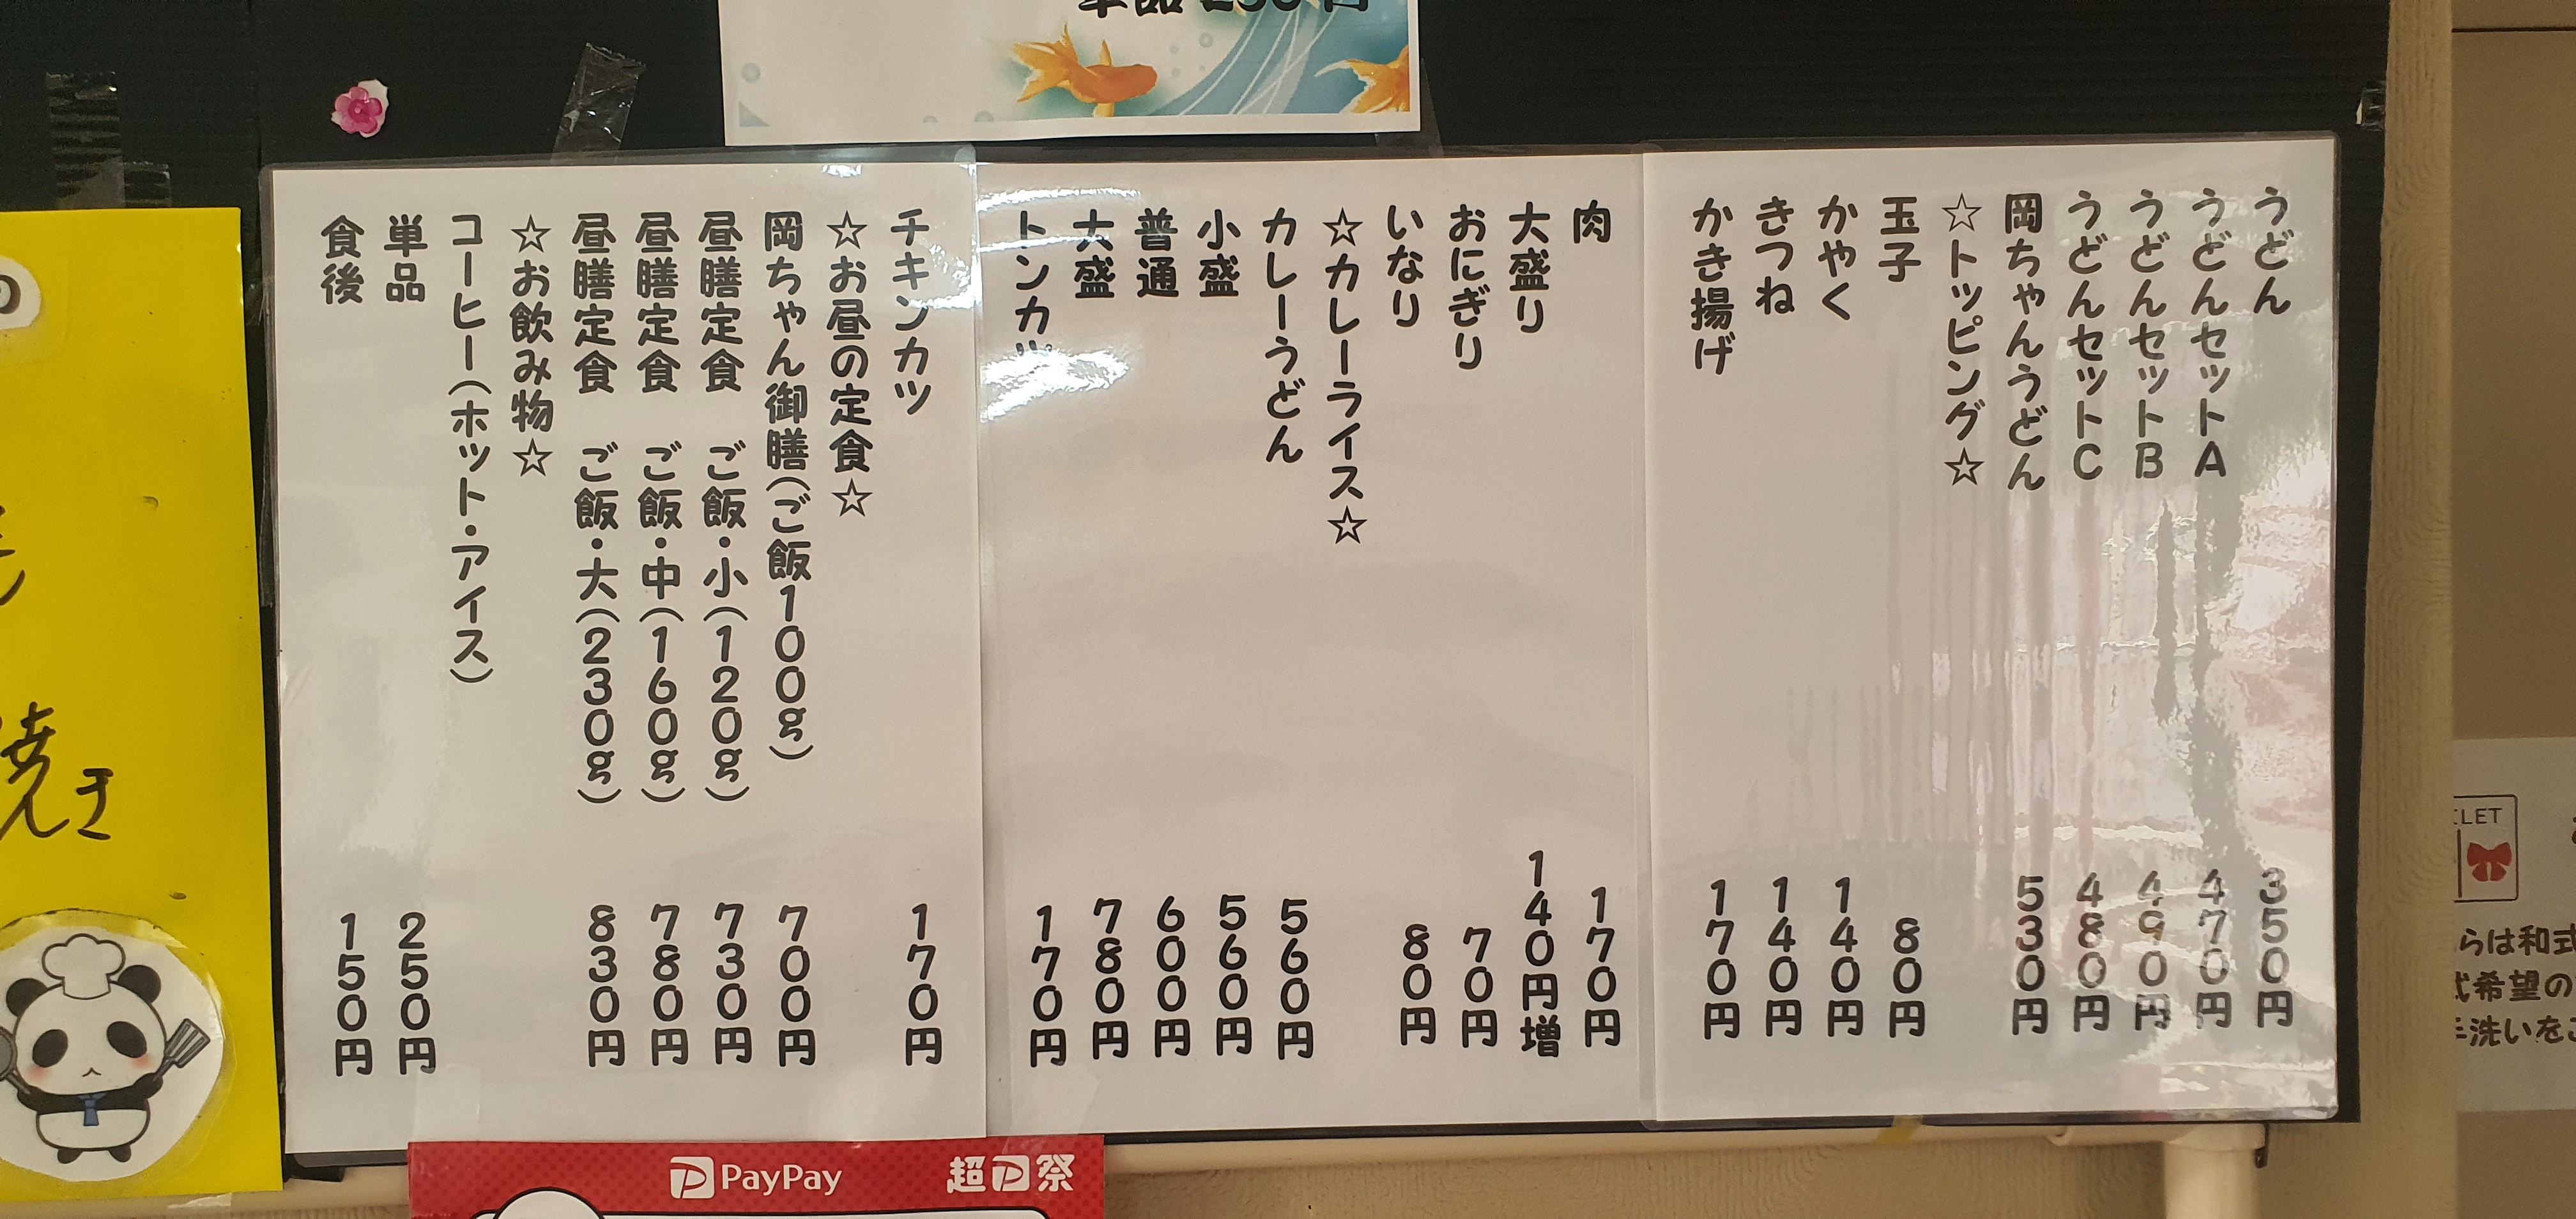 単品 250円
うどん 350円
うどんセットA 470円
うどんセットB 490円
うどんセットC 480円
岡ちゃんうどん 530円
☆トッピング☆
玉子 80円
かやく 140円
きつね 140円
かき揚げ 170円
肉 170円
大盛り 140円増
おにぎり 70円
いなり 80円
☆カレーライス☆
カレーうどん 560円
小盛 560円
普通 600円
大盛 780円
トンカツ 170円
チキンカツ 170円
☆お昼の定食☆
岡ちゃん御膳(ご飯100g) 700円
昼膳定食 ご飯・小(120g) 730円
昼膳定食 ご飯・中(160g) 780円
昼膳定食 ご飯・大(230g) 830円
☆お飲み物☆
コーヒー(ホット・アイス)
単品 250円
食後 150円
の
焼き
PayPay 超P祭
LET
らは和式
式希望の
手洗いを